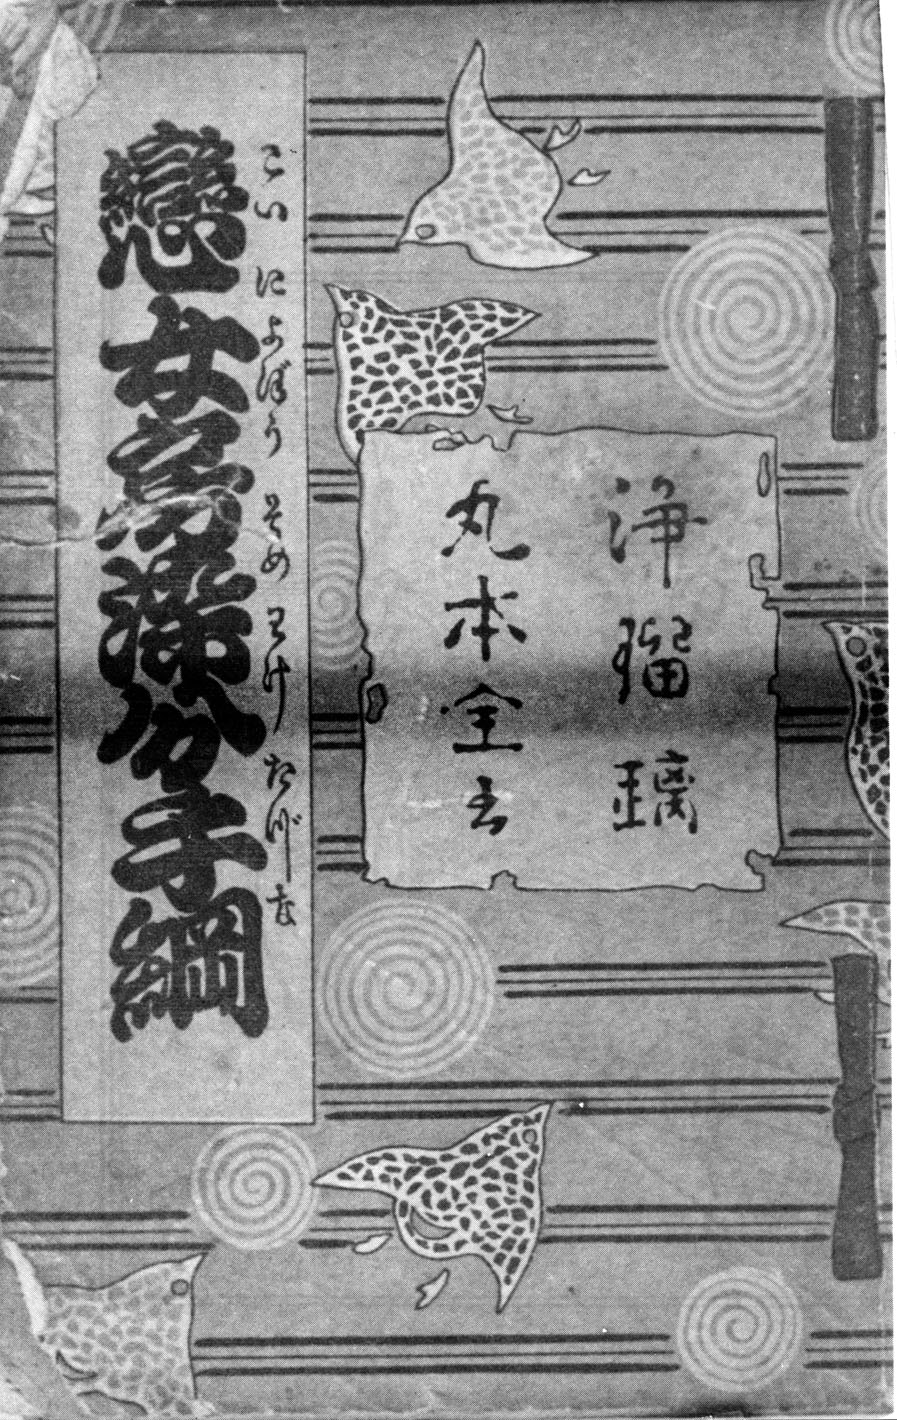 浄瑠璃
丸本全
こいによぼうそめわけたづな
戀女房染分手綱